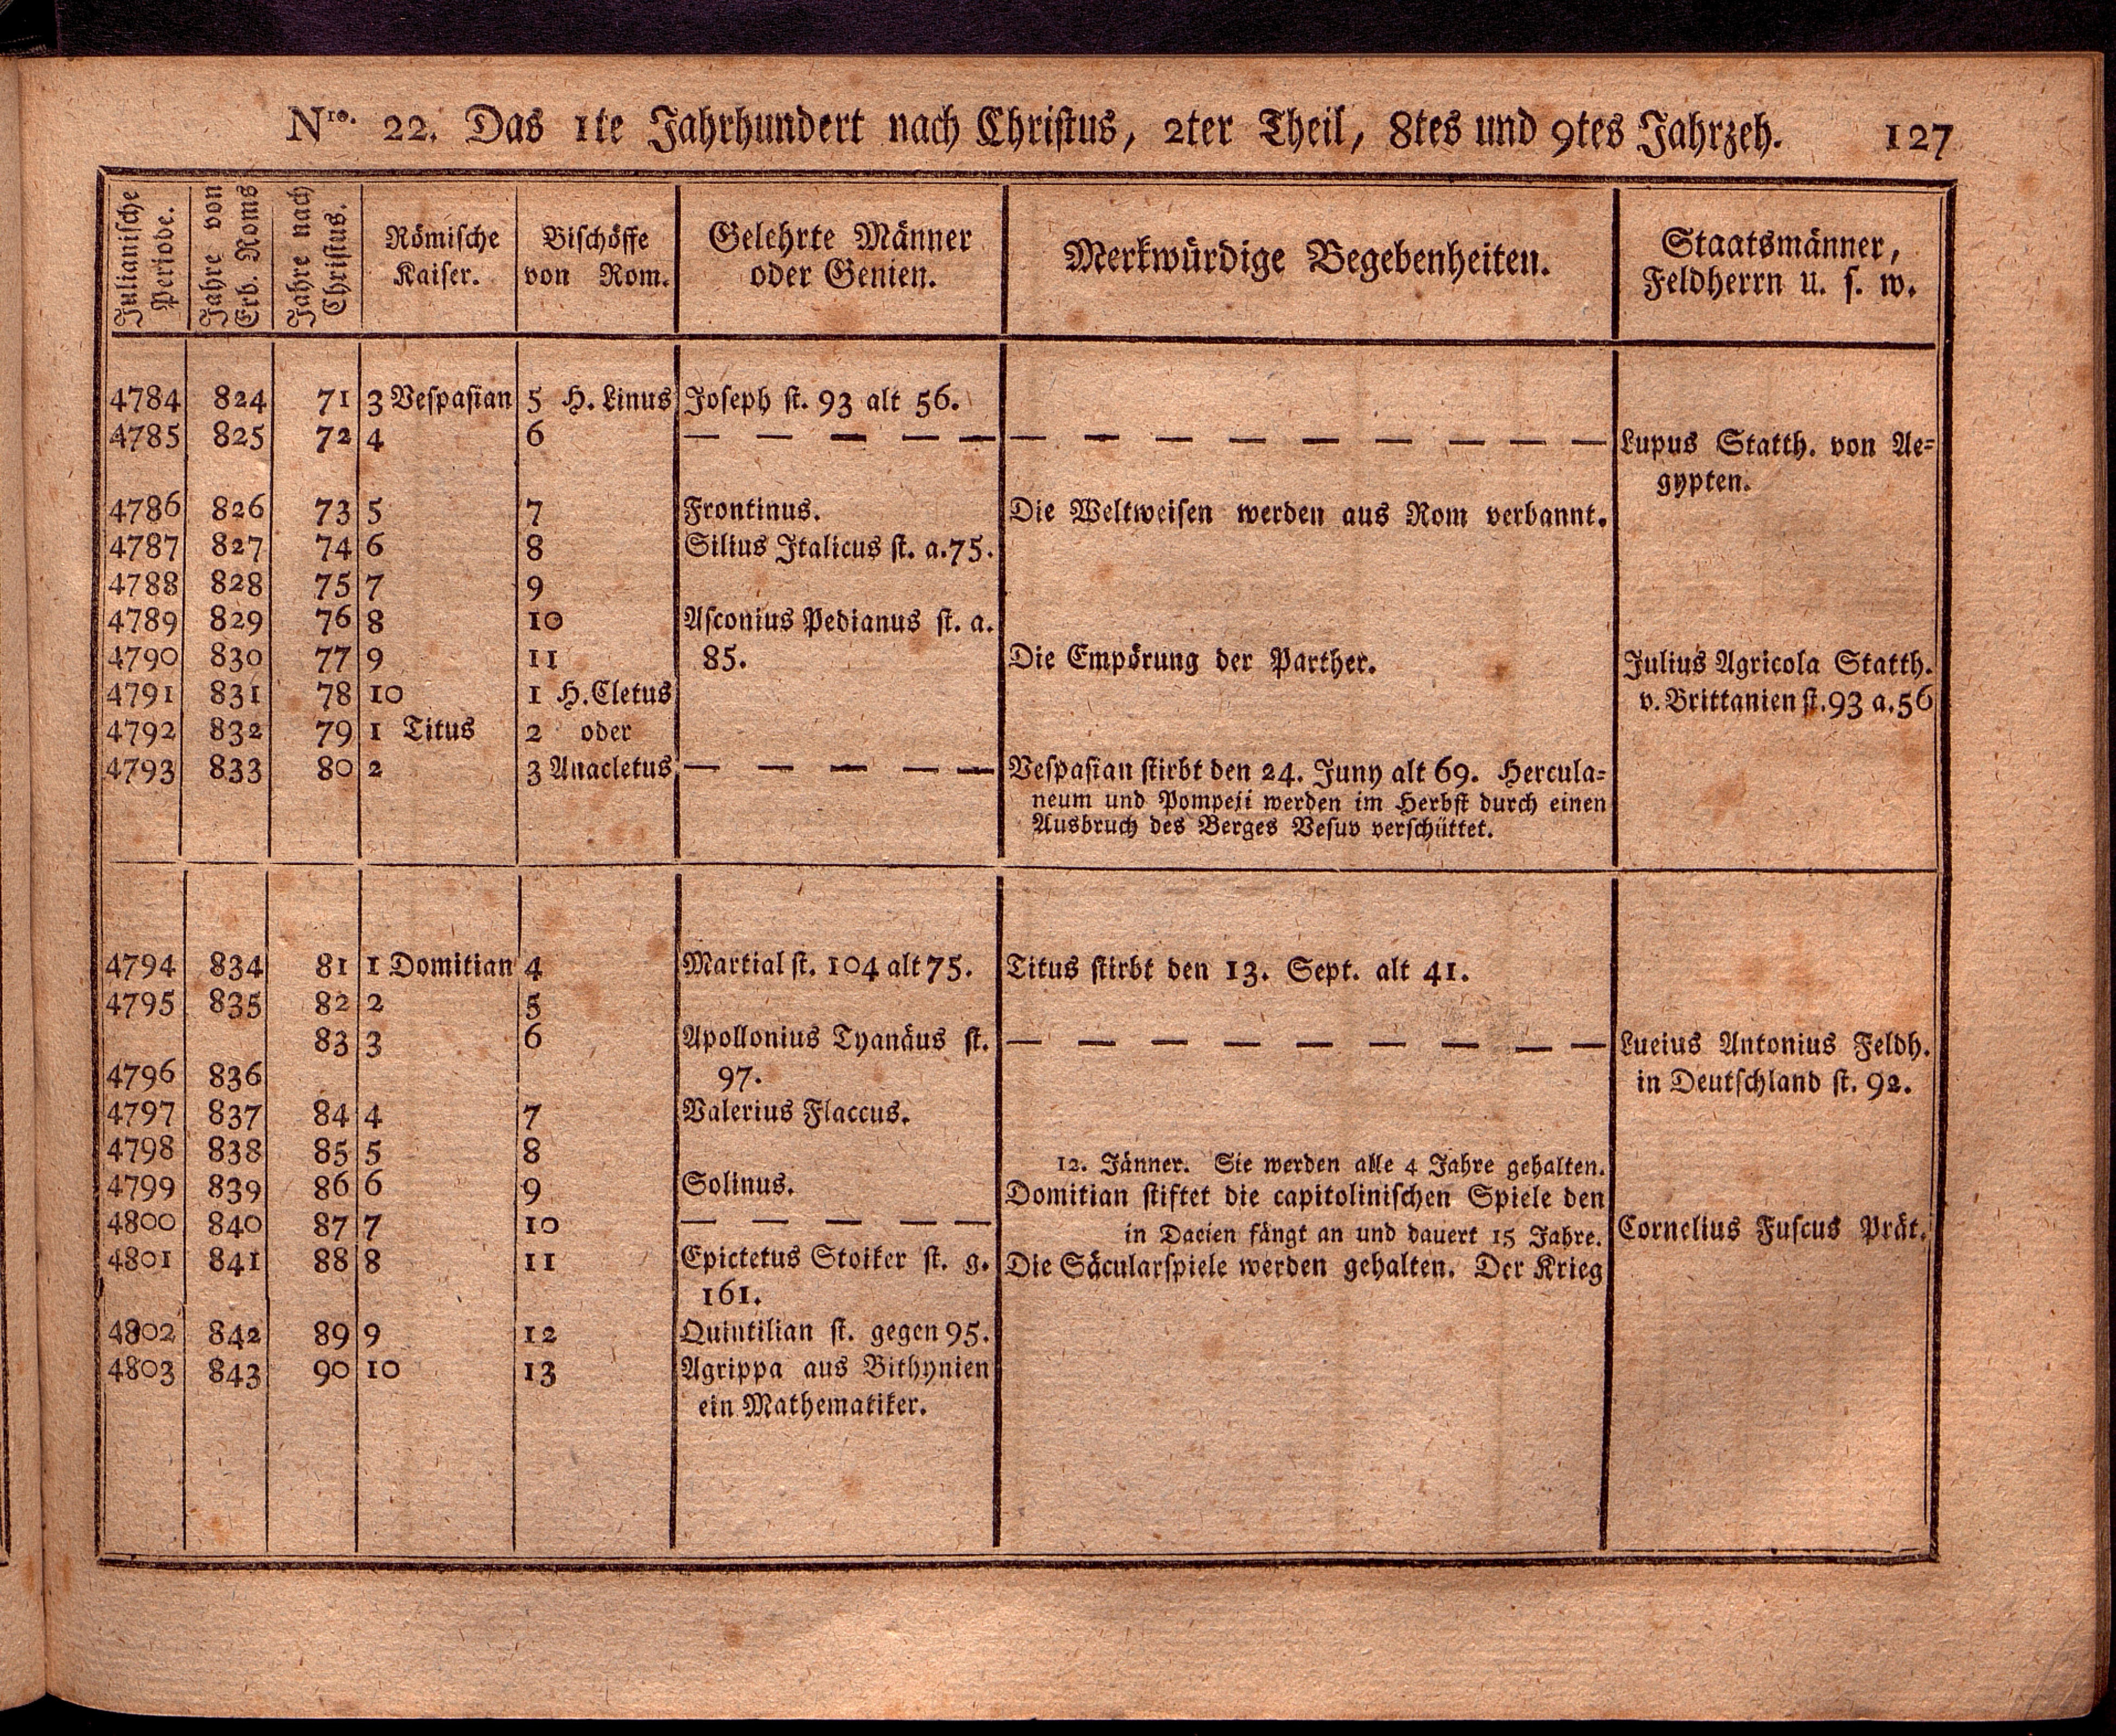 Nro. 22. Das 1te Jahrhundert nach Christus, 2ter Theil, 8tes und 9tes Jahrzeh. 127
Julianische Periode. | Jahre von Erb. Roms | Jahre nach Christus. | Römische Kaiser. | Bischöffe von Rom. | Gelehrte Männer oder Genien. | Merkwürdige Begebenheiten. | Staatsmänner, Feldherrn u. s. w.
4784 824 71 3 Vespasian 5 H. Linus Joseph st. 93 alt 56.
4785 825 72 4 6 — — — — — — — — — — — — — Lupus Statth. von Ae-
gypten.
4786 826 73 5 7 Frontinus. Die Weltweisen werden aus Rom verbannt.
4787 827 74 6 8 Silius Italicus st. a. 75.
4788 828 75 7 9
4789 829 76 8 10 Asconius Pedianus st. a.
4790 830 77 9 11 85. Die Empörung der Parther. Julius Agricola Statth.
4791 831 78 10 1 H. Cletus v. Brittanien st. 93 a. 56
4792 832 79 1 Titus 2 oder
4793 833 80 2 3 Anacletus — — — — — Vespasian stirbt den 24. Juny alt 69. Hercula-
neum und Pompeji werden im Herbst durch einen
Ausbruch des Berges Vesuv verschüttet.
4794 834 81 1 Domitian 4 Martial st. 104 alt 75. Titus stirbt den 13. Sept. alt 41.
4795 835 82 2 5
83 3 6 Apollonius Tyanäus st. — — — — — — — — — Lucius Antonius Feldh.
4796 836 97. in Deutschland st. 92.
4797 837 84 4 7 Valerius Flaccus.
4798 838 85 5 8 12. Jänner. Sie werden alle 4 Jahre gehalten.
4799 839 86 6 9 Solinus. Domitian stiftet die capitolinischen Spiele den
4800 840 87 7 10 — — — — — in Dacien fängt an und dauert 15 Jahre. Cornelius Fuscus Prät.
4801 841 88 8 11 Epictetus Stoiker st. g. Die Säcularspiele werden gehalten. Der Krieg
161.
4802 842 89 9 12 Quintilian st. gegen 95.
4803 843 90 10 13 Agrippa aus Bithynien
ein Mathematiker.